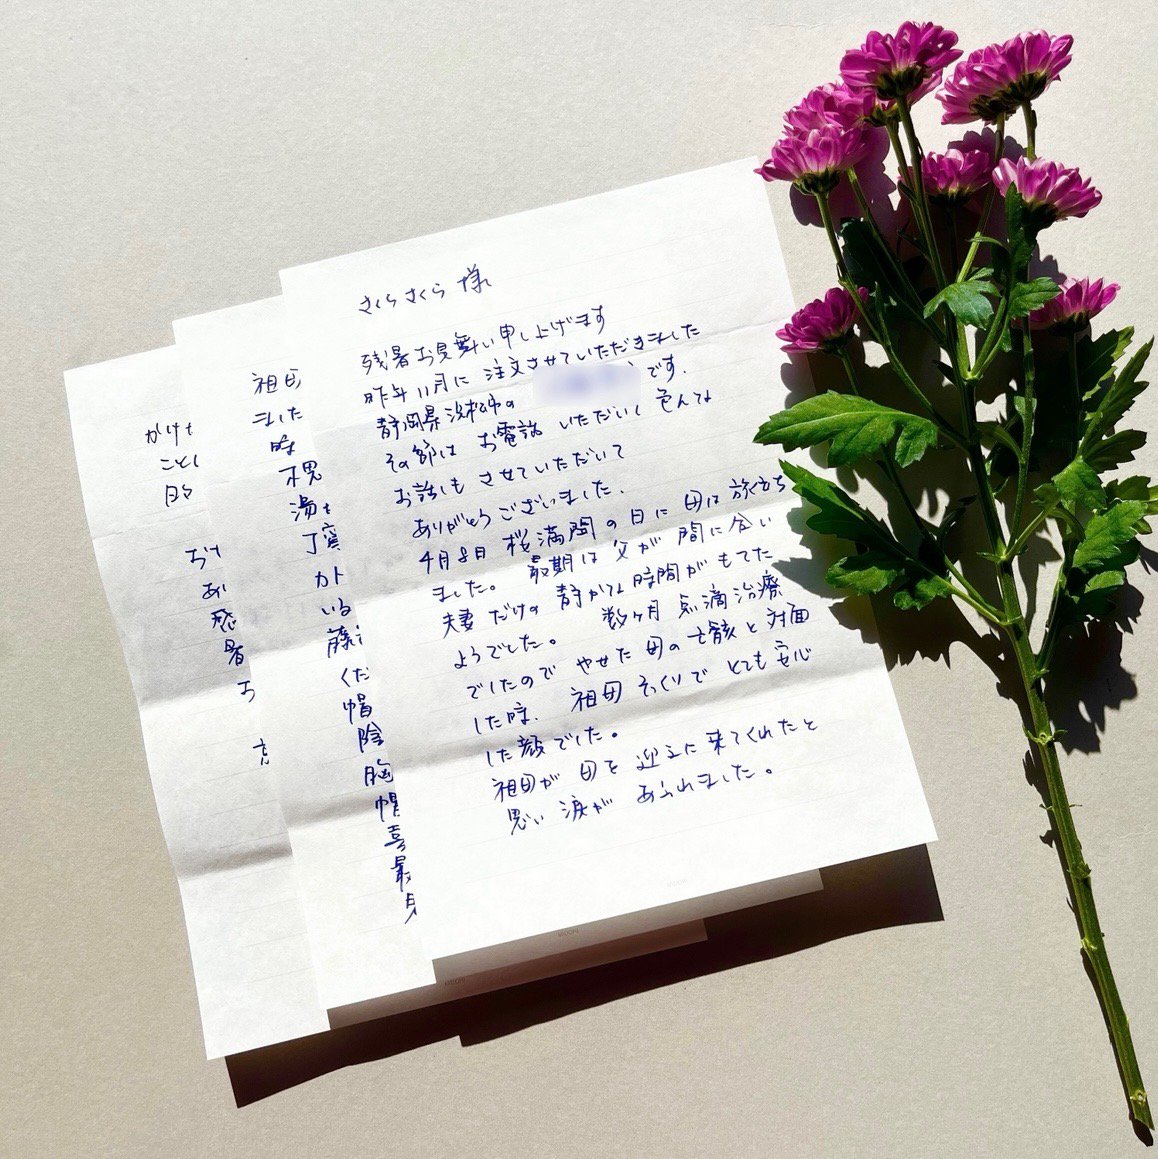 さくらさくら 様
残暑お見舞い申し上げます
昨年11月に 注文させていただきました
静岡県浜松市の です.
その節は お電話 いただいしく 色んな
お話しも させていただいて
ありがとうございました.
4月8日 桜満開の日に 母は 旅立ち
ました。 最期は 父が 間に合い
夫妻だけの 静かな時間がもてた
ようでした。 数ヶ月 点滴治療
でしたので やせた 母の 亡骸と 対面
した時、祖母 そっくりで とても 安心
した顔でした。
祖母が 母を 迎えに 来てくれたと
思い 涙が あふれました。
祖母
ました
時
湯も
丁寧
カト
いる
藤
くだ
帽
陰
胸
帽
喜
最
かけも
こと
日々
おけ
あ
感
暑
お
MIDORI
MIDORI
MIDORI